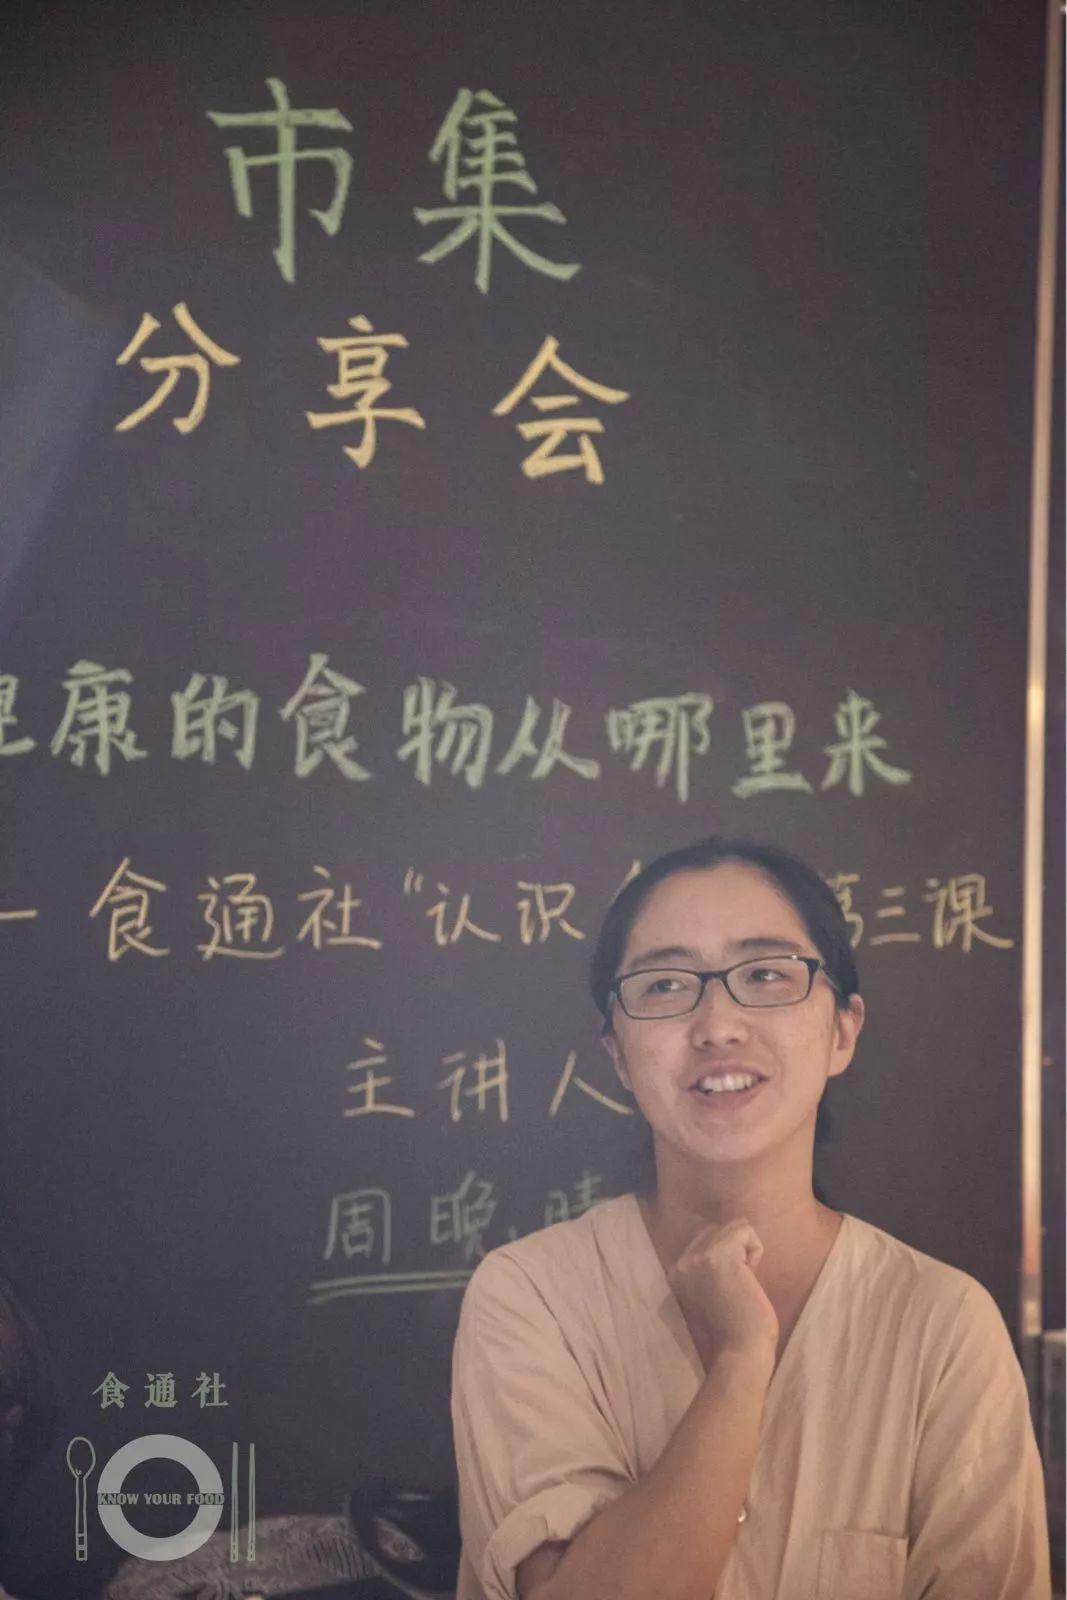 市集
分享会
康的食物从哪里来
食通社“认识 第三课
主讲人
周晚晴
食通社
KNOW YOUR FOOD